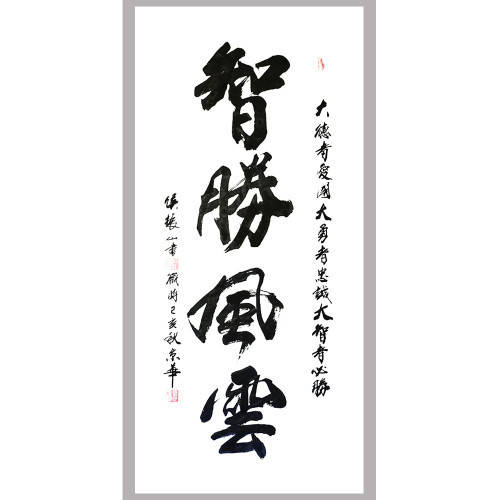 大德者愛國大勇者忠誠大智者必勝
智勝風雲
侯振山書 歲時己亥秋京華